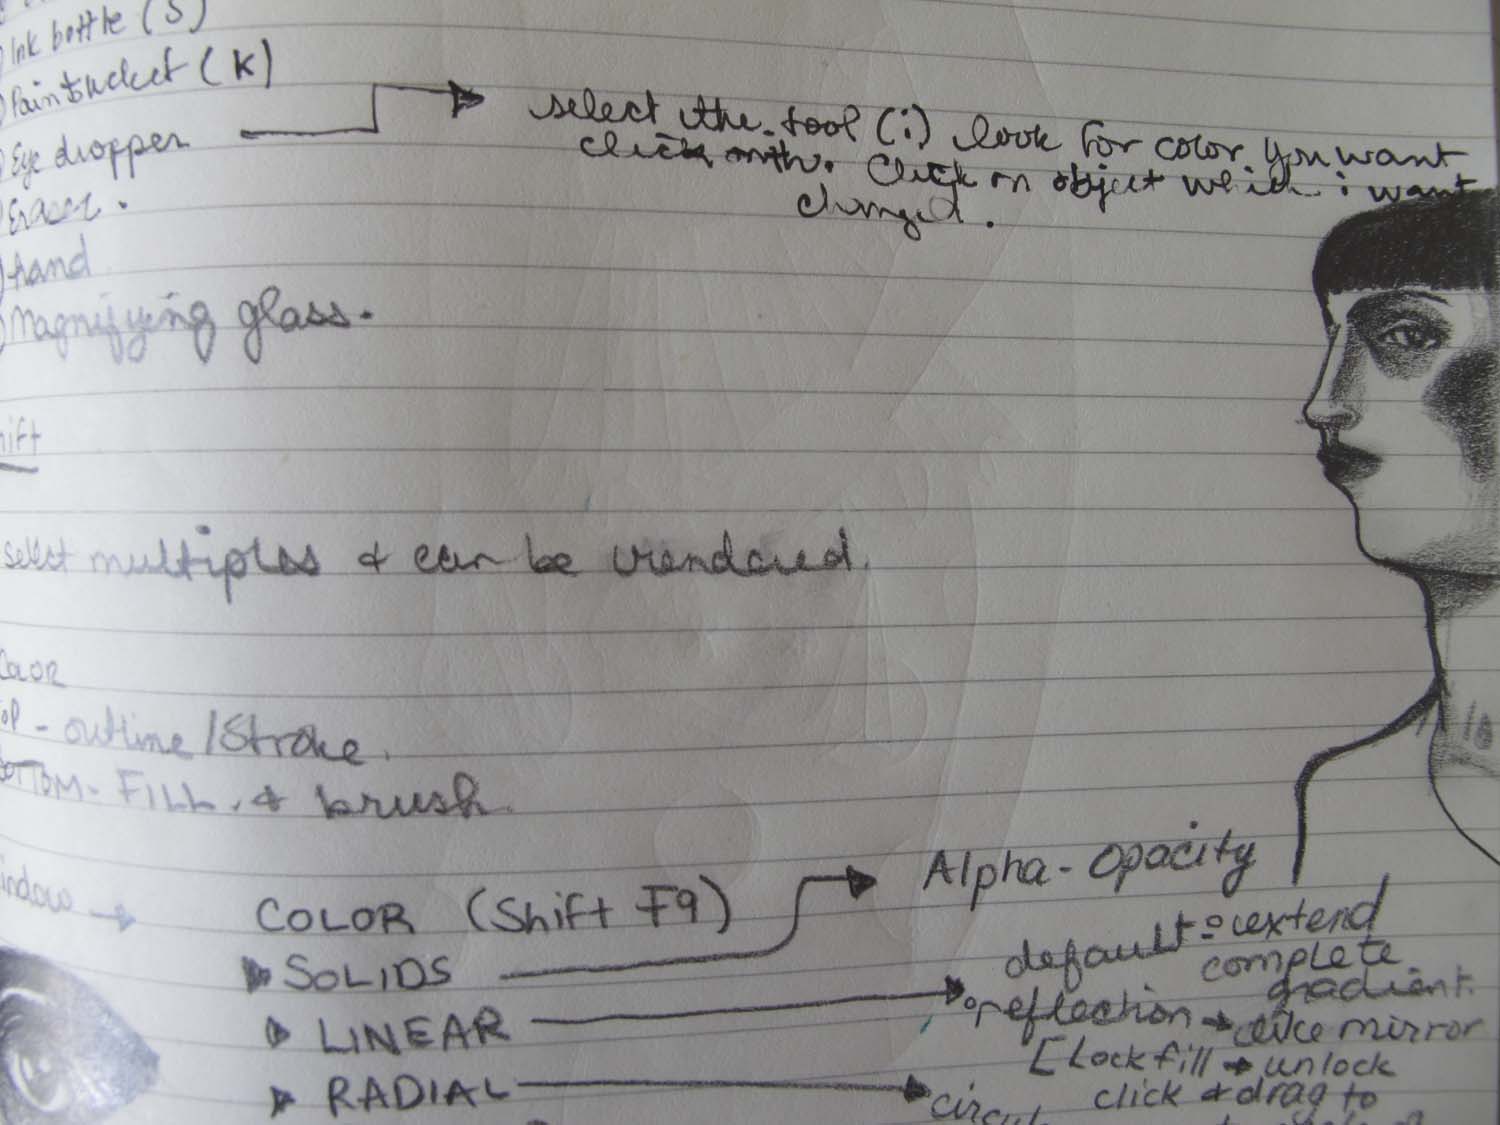 Ink bottle (S)
Paintbucket (K)
Eye dropper
select the tool (i) look for color you want
click with. Click on object which i want
changed.
Eraser.
hand
Magnifying glass.
hift
select multiples & can be
Color
Top - outline / Stroke.
Bottom - FILL. & brush
indow
Alpha - Opacity
COLOR (Shift F9)
SOLIDS
default = extend
complete
gradient.
LINEAR
reflection → like mirror
[Lock fill → unlock
RADIAL
click & drag to